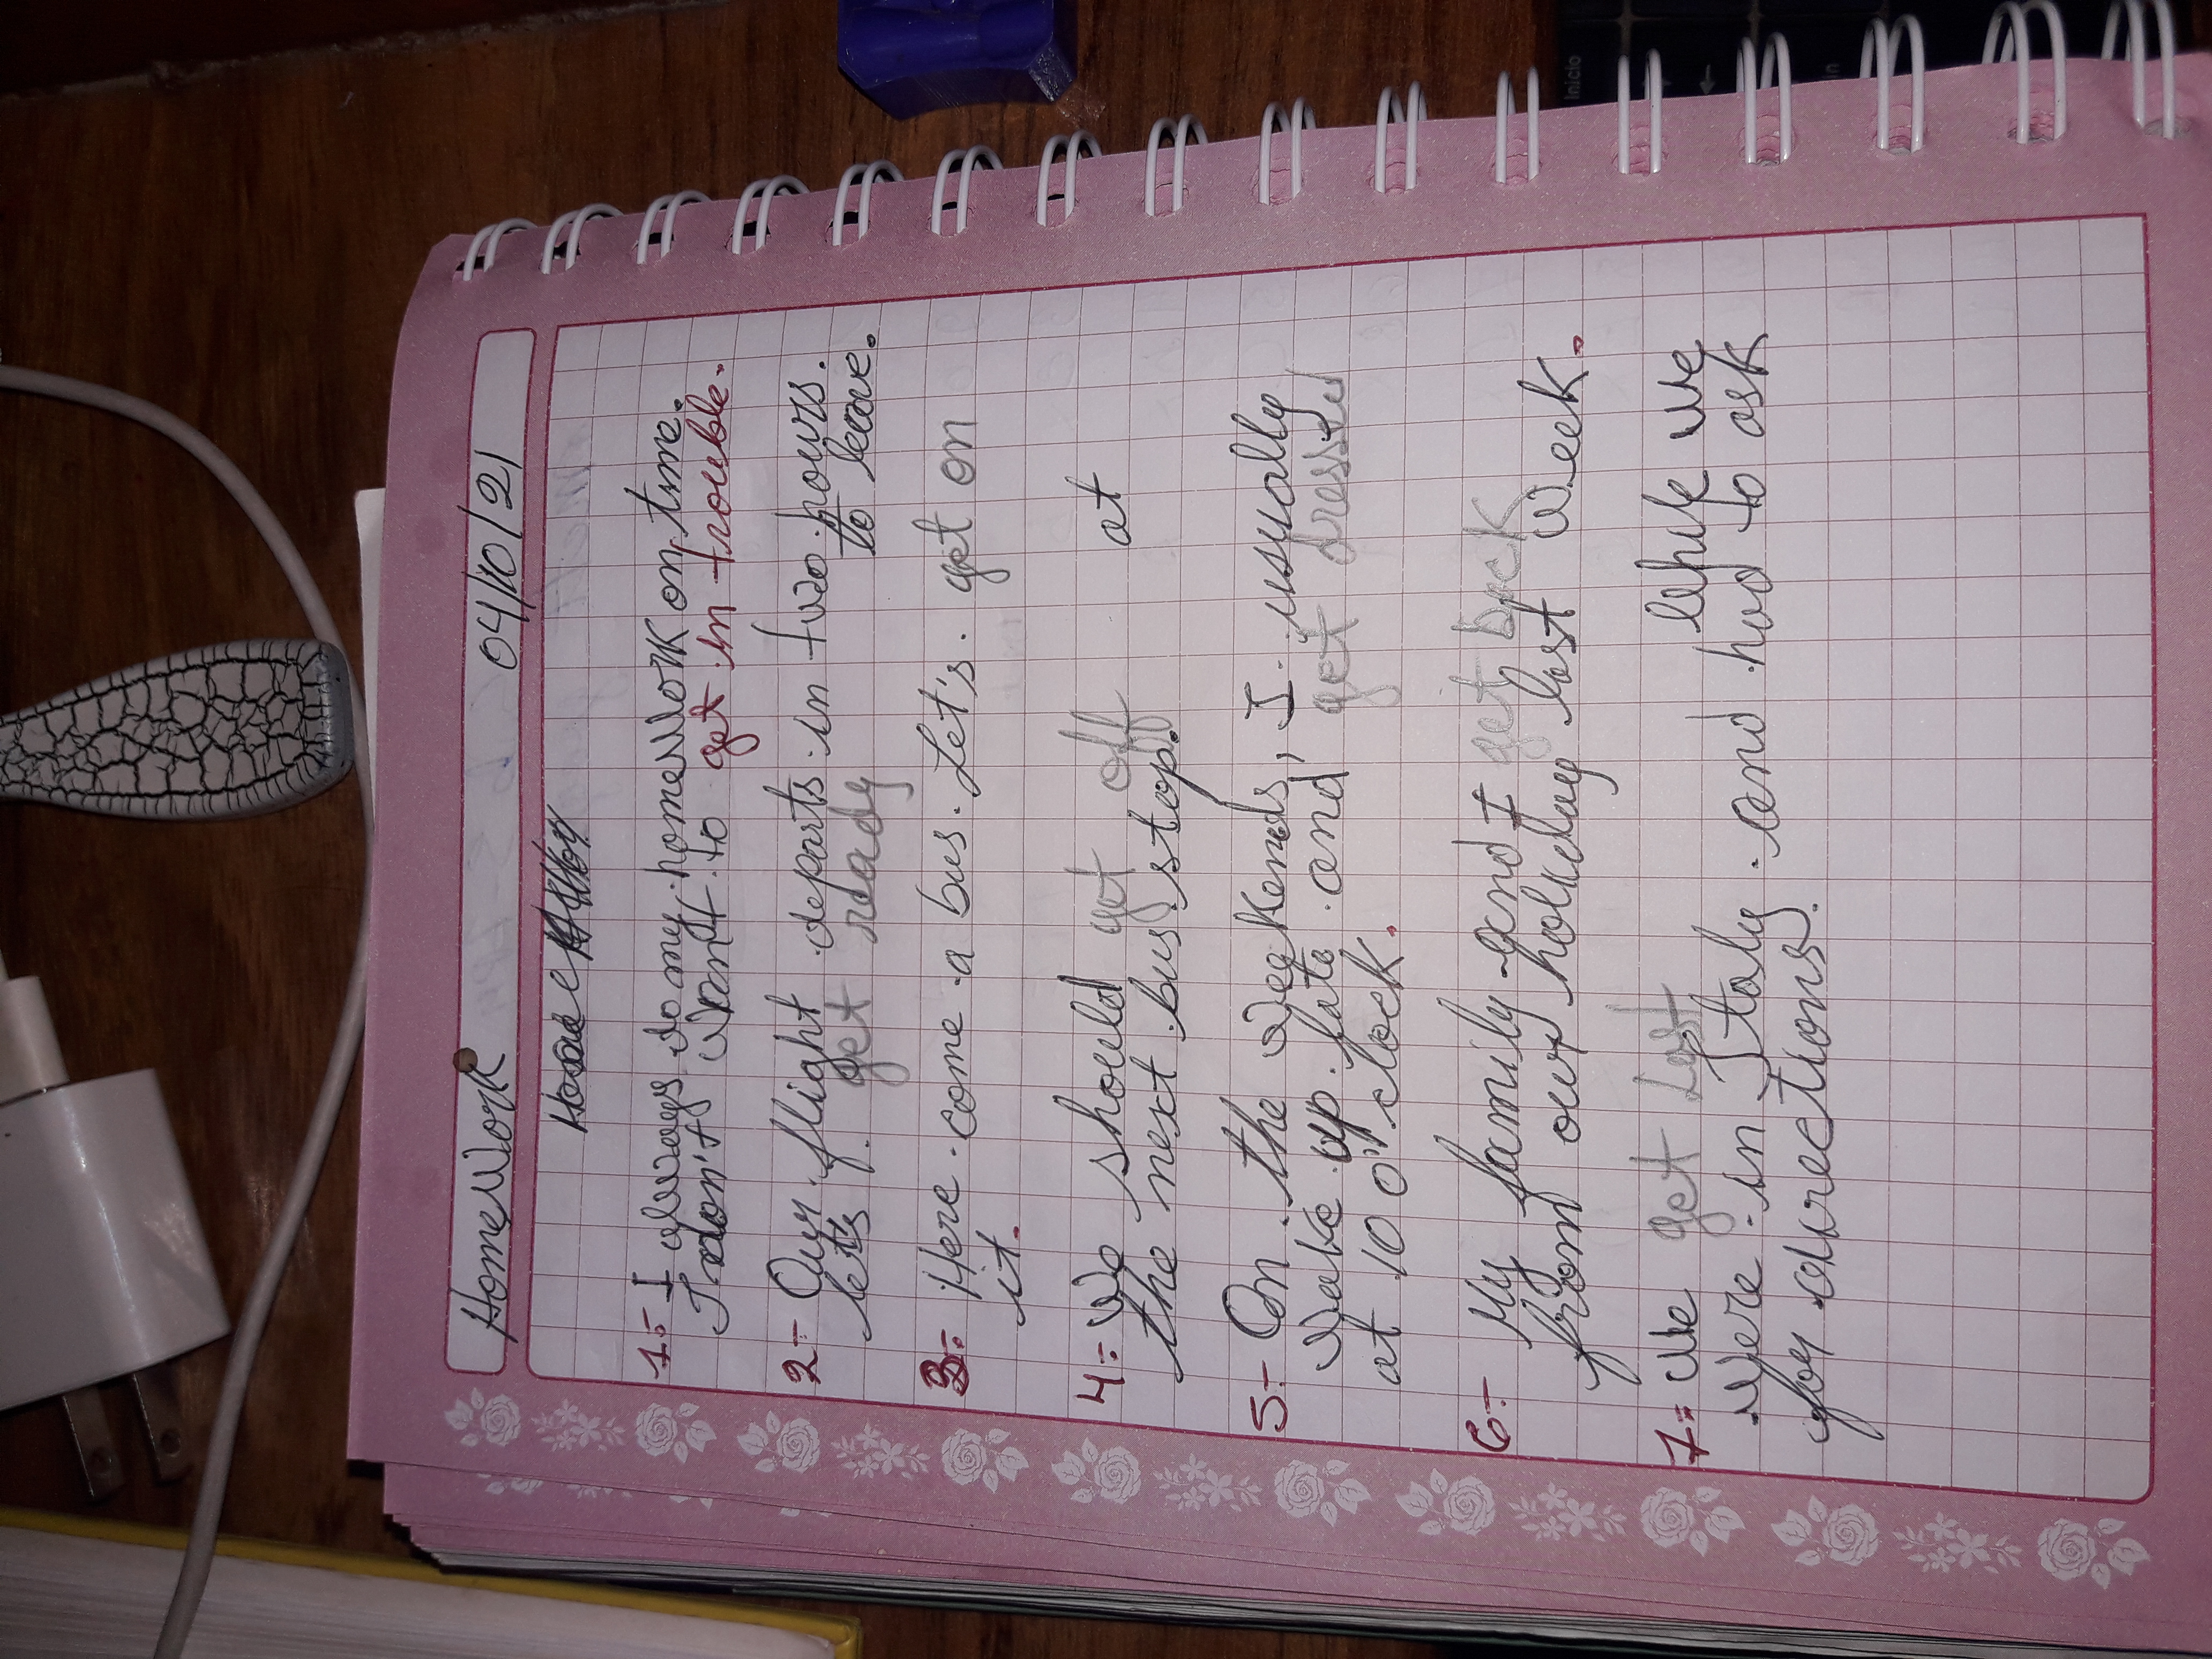 HomeWork 04/10/21
1.- I always do my homework on time.
I don't want to get in trouble.
2.- Our flight departs in two hours.
lets get ready to leave.
3.- Here come a bus. Let's. get on
it.
4.- We should get off at
the next bus stop.
5.- On the weekends, I usually
wake up late and get dressed
at 10 o'clock.
6.- My family and I get back
from our holiday last week.
7.- We get Lost while we
were in Italy and had to ask
for directions.
Inicio